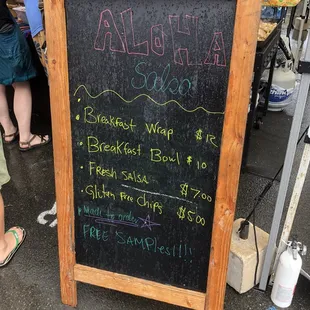 ALOHA
Salsa
• Breakfast Wrap $12
• Breakfast Bowl $10
• Fresh salsa $7.00
• Gluten free chips $5.00
Made to order
FREE SAMPles!!!!